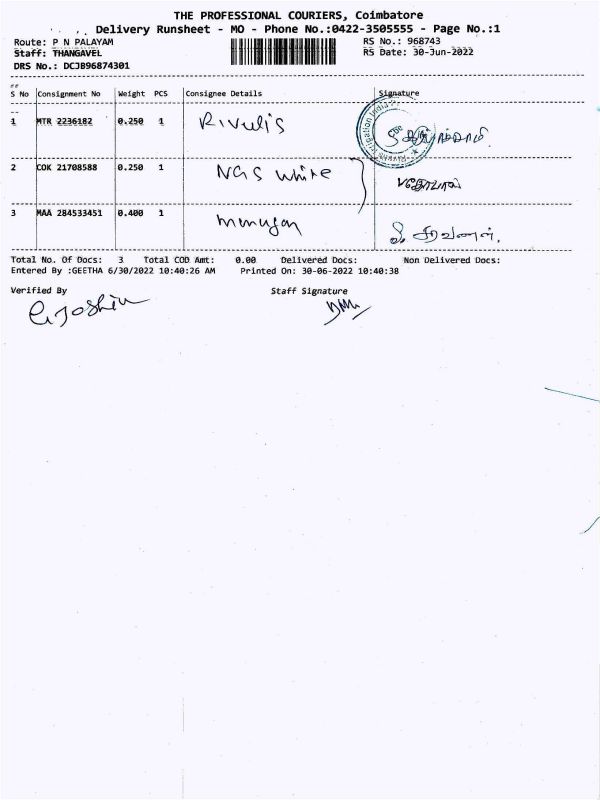 THE PROFESSIONAL COURIERS, Coimbatore
Delivery Runsheet - MO - Phone No.:0422-3505555 - Page No.:1
Route: P N PALAYAM RS No.: 968743
Staff: THANGAVEL RS Date: 30-Jun-2022
DRS No.: DCJB96874301
S No Consignment No Weight PCS Consignee Details Signature
1 MTR 2236182 0.250 1 Rivulis
2 COK 21708588 0.250 1 NGS white
3 MAA 284533451 0.400 1 murugan
Total No. Of Docs: 3 Total COD Amt: 0.00 Delivered Docs: Non Delivered Docs:
Entered By :GEETHA 6/30/2022 10:40:26 AM Printed On: 30-06-2022 10:40:38
Verified By Staff Signature